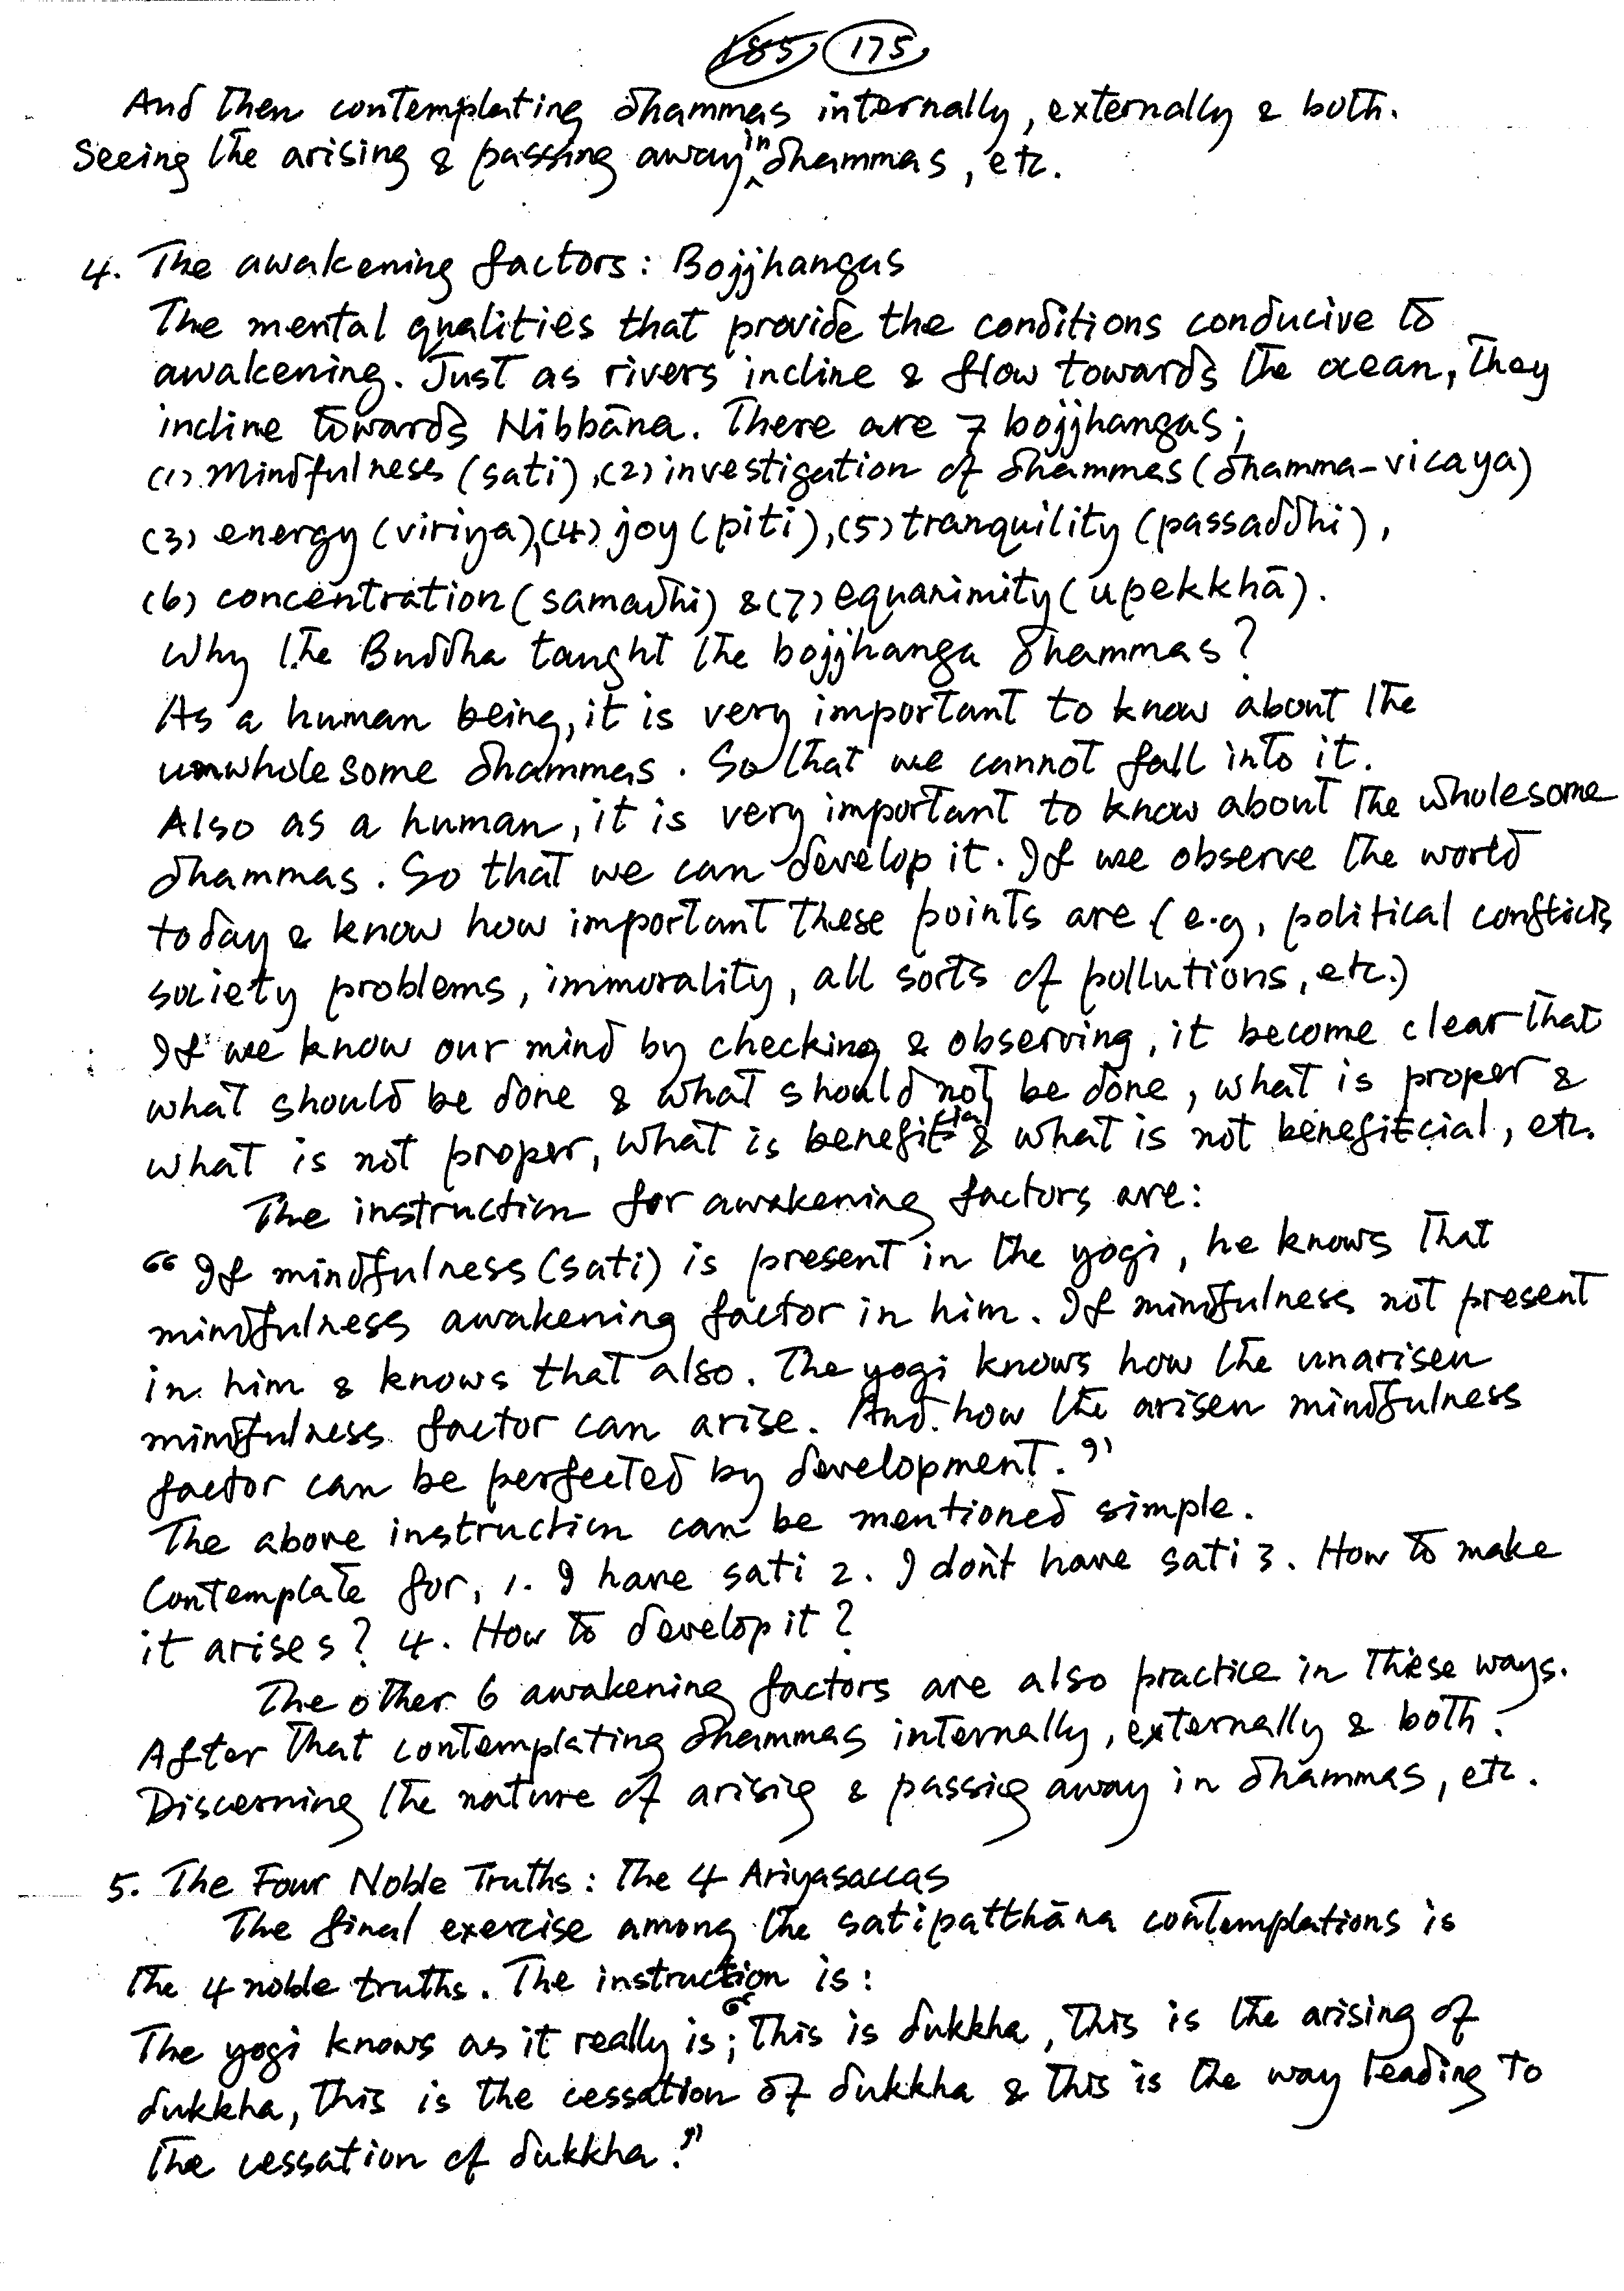 185 175
And then contemplating dhammas internally, externally & both.
Seeing the arising & passing away in dhammas, etc.
4. The awakening factors: Bojjhangas
The mental qualities that provide the conditions conducive to
awakening. Just as rivers incline & flow towards the ocean, they
incline towards Nibbāna. There are 7 bojjhangas;
(1) Mindfulness (sati), (2) investigation of dhammas (dhamma-vicaya)
(3) energy (viriya), (4) joy (piti), (5) tranquility (passaddhi),
(6) concentration (samadhi) & (7) equanimity (upekkhā).
Why the Buddha taught the bojjhanga dhammas?
As a human being, it is very important to know about the
unwholesome dhammas. So that we cannot fall into it.
Also as a human, it is very important to know about the wholesome
dhammas. So that we can develop it. If we observe the world
today & know how important these points are (e.g, political conflicts
society problems, immorality, all sorts of pollutions, etc.)
If we know our mind by checking & observing, it become clear that
what should be done & what should not be done, what is proper &
what is not proper, what is benefitcial & what is not benefitcial, etc.
The instruction for awakening factors are:
“If mindfulness (sati) is present in the yogi, he knows that
mindfulness awakening factor in him. If mindfulness not present
in him & knows that also. The yogi knows how the unarisen
mindfulness factor can arise. And how the arisen mindfulness
factor can be perfected by development.”
The above instruction can be mentioned simple.
Contemplate for, 1. I have sati 2. I don't have sati 3. How to make
it arises? 4. How to develop it?
The other 6 awakening factors are also practice in these ways.
After that contemplating dhammas internally, externally & both.
Discerning the nature of arisig & passig away in dhammas, etc.
5. The Four Noble Truths: The 4 Ariyasaccas
The final exercise among the satipatthāna contemplations is
the 4 noble truths. The instruction is:
The yogi knows as it really is; “This is dukkha, this is the arising of
dukkha, this is the cessation of dukkha & this is the way leading to
the cessation of dukkha.”